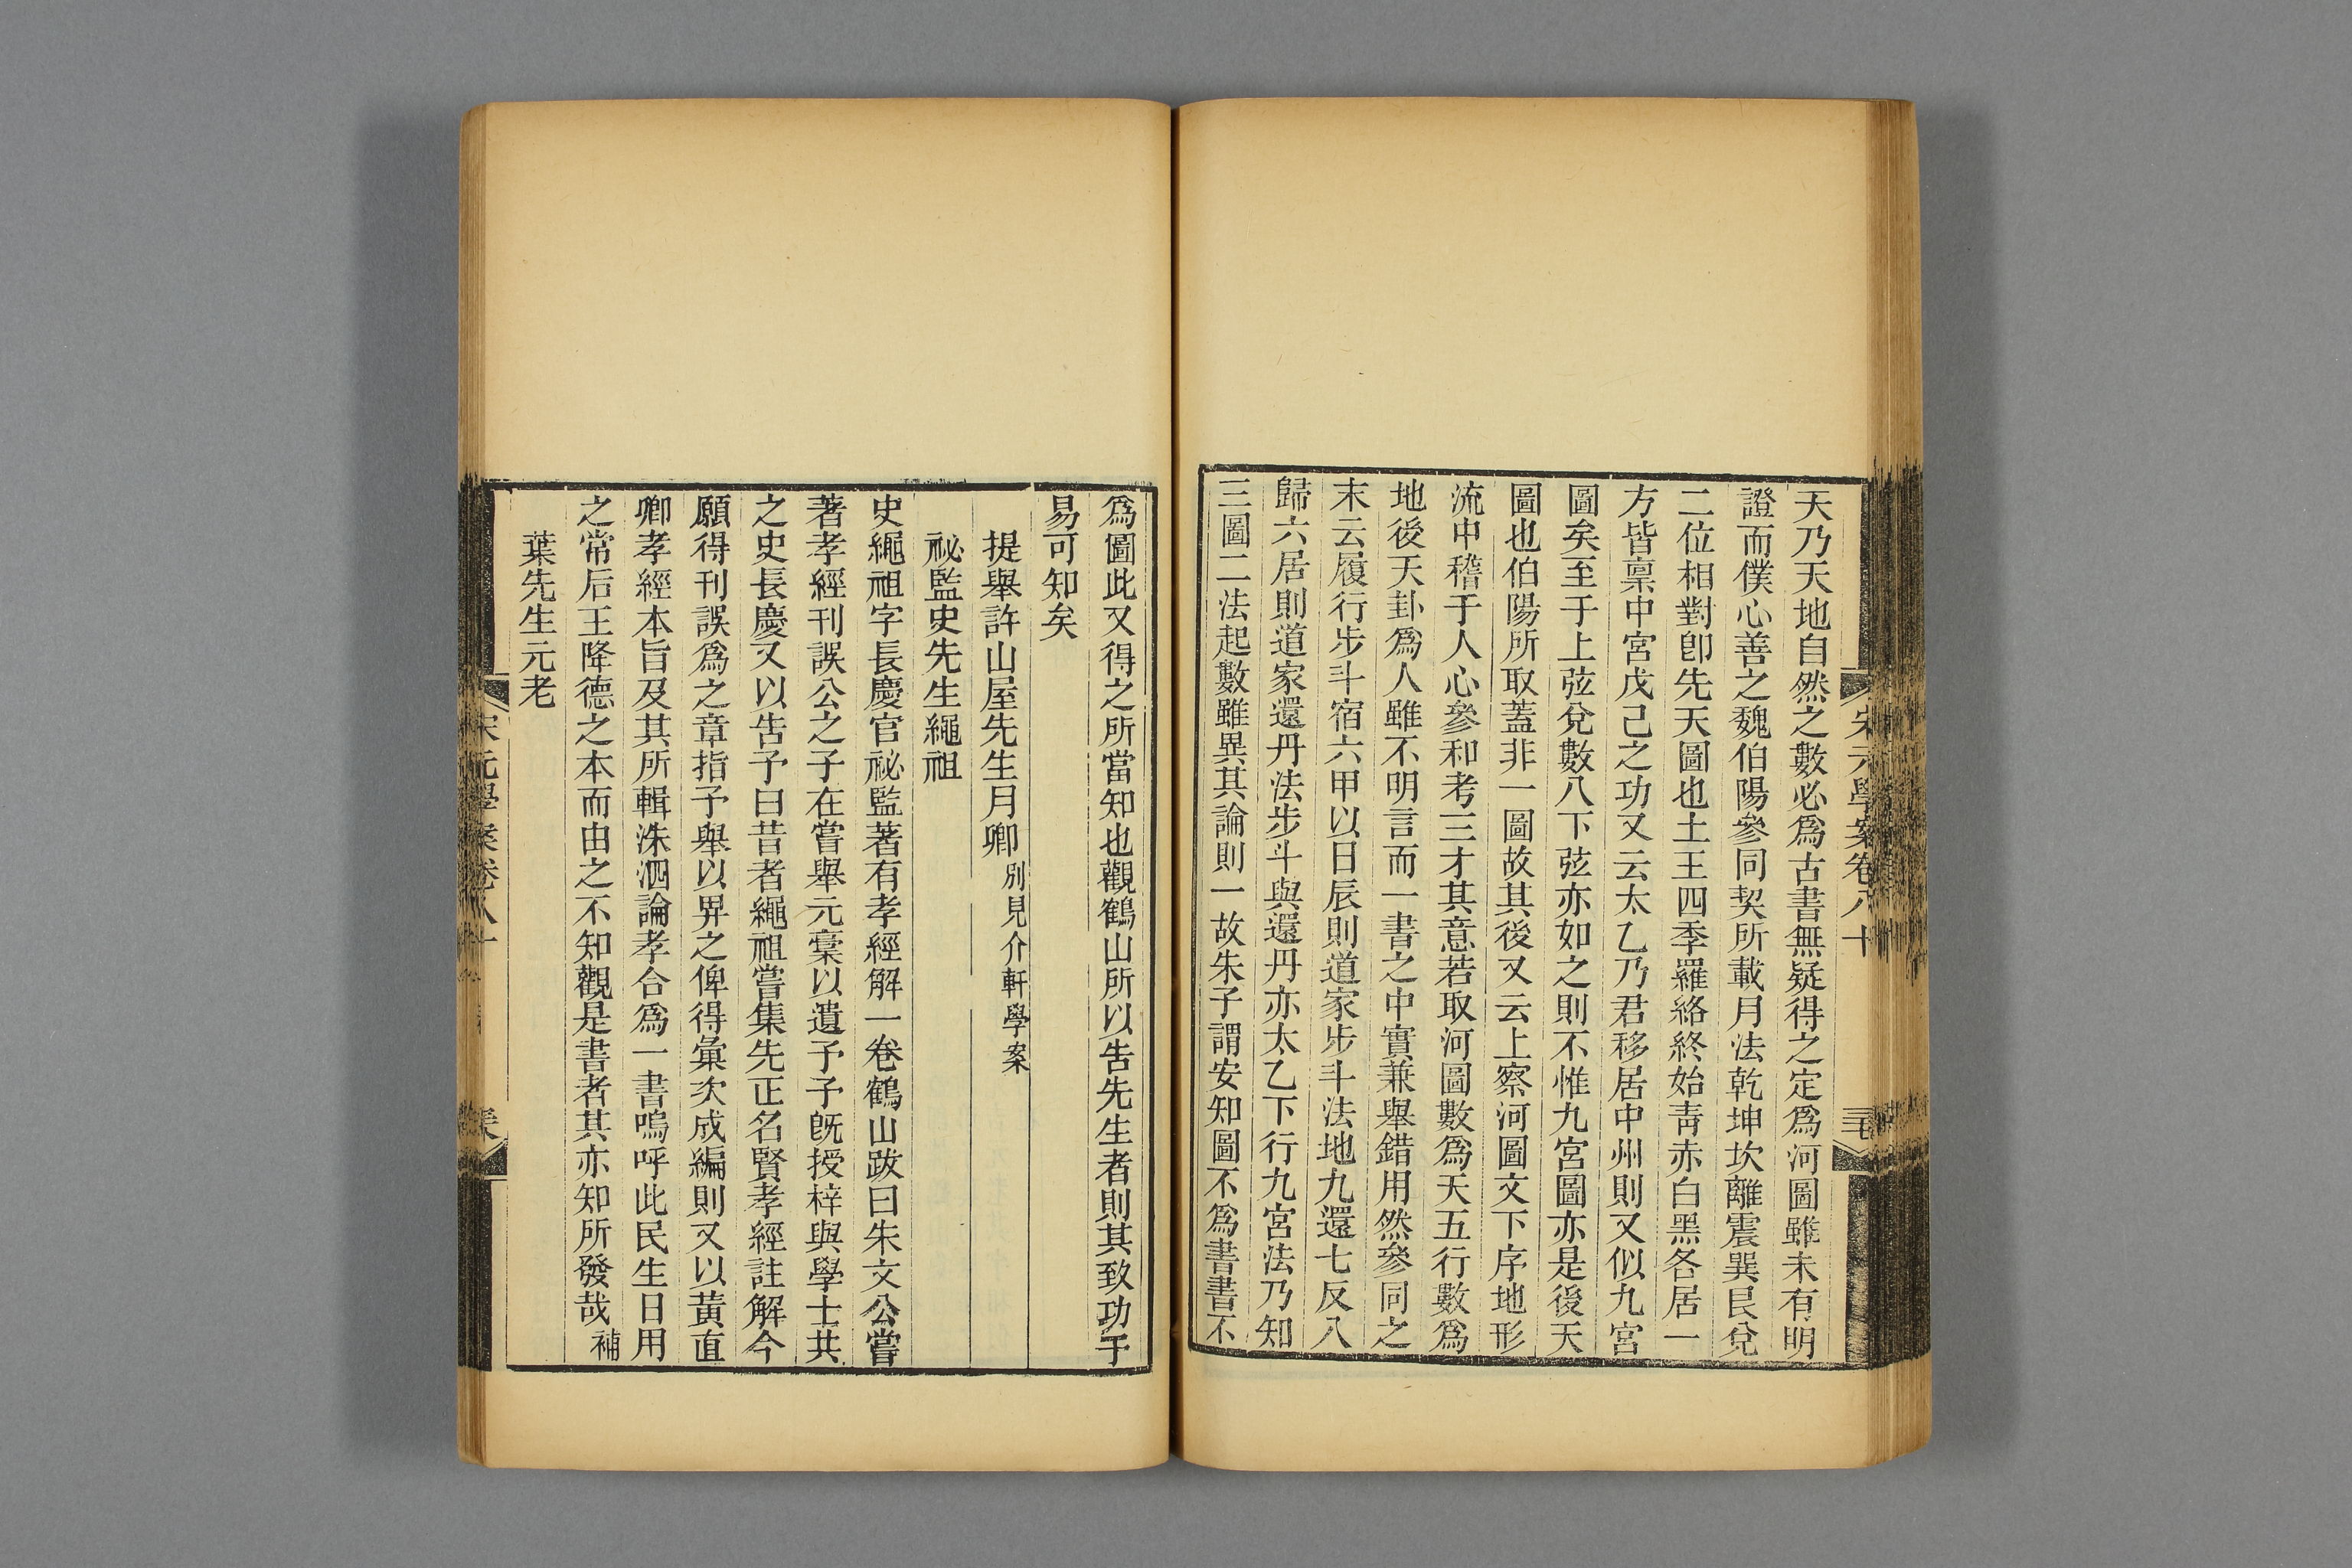 天乃天地自然之數必爲古書無疑得之定爲河圖雖未有明
證而僕心善之魏伯陽參同契所載月法乾坤坎離震巽艮兌
二位相對卽先天圖也土王四季羅絡終始靑赤白黑各居一
方皆稟中宮戊己之功又云太乙乃君移居中州則又似九宮
圖矣至于上弦兌數八下弦亦如之則不惟九宮圖亦是後天
圖也伯陽所取蓋非一圖故其後又云上察河圖文下序地形
流中稽于人心參和考三才其意若取河圖數爲天五行數爲
地後天卦爲人雖不明言而一書之中實兼舉錯用然參同之
末云履行步斗宿六甲以日辰則道家步斗法地九還七反八
歸六居則道家還丹法步斗與還丹亦太乙下行九宮法乃知
三圖二法起數雖異其論則一故朱子謂安知圖不爲書書不
宋元學案卷八十
爲圖此又得之所當知也觀鶴山所以告先生者則其致功于
易可知矣
提舉許山屋先生月卿 別見介軒學案
祕監史先生繩祖
史繩祖字長慶官祕監著有孝經解一卷鶴山跋曰朱文公嘗
著孝經刊誤公之子在嘗舉元稾以遺予予旣授梓與學士共
之史長慶又以告予曰昔者繩祖嘗集先正名賢孝經註解今
願得刊誤爲之章指予舉以畀之俾得彙次成編則又以黃直
卿孝經本旨及其所輯洙泗論孝合爲一書嗚呼此民生日用
之常后王降德之本而由之不知觀是書者其亦知所發哉 補
葉先生元老
宋元學案卷八十